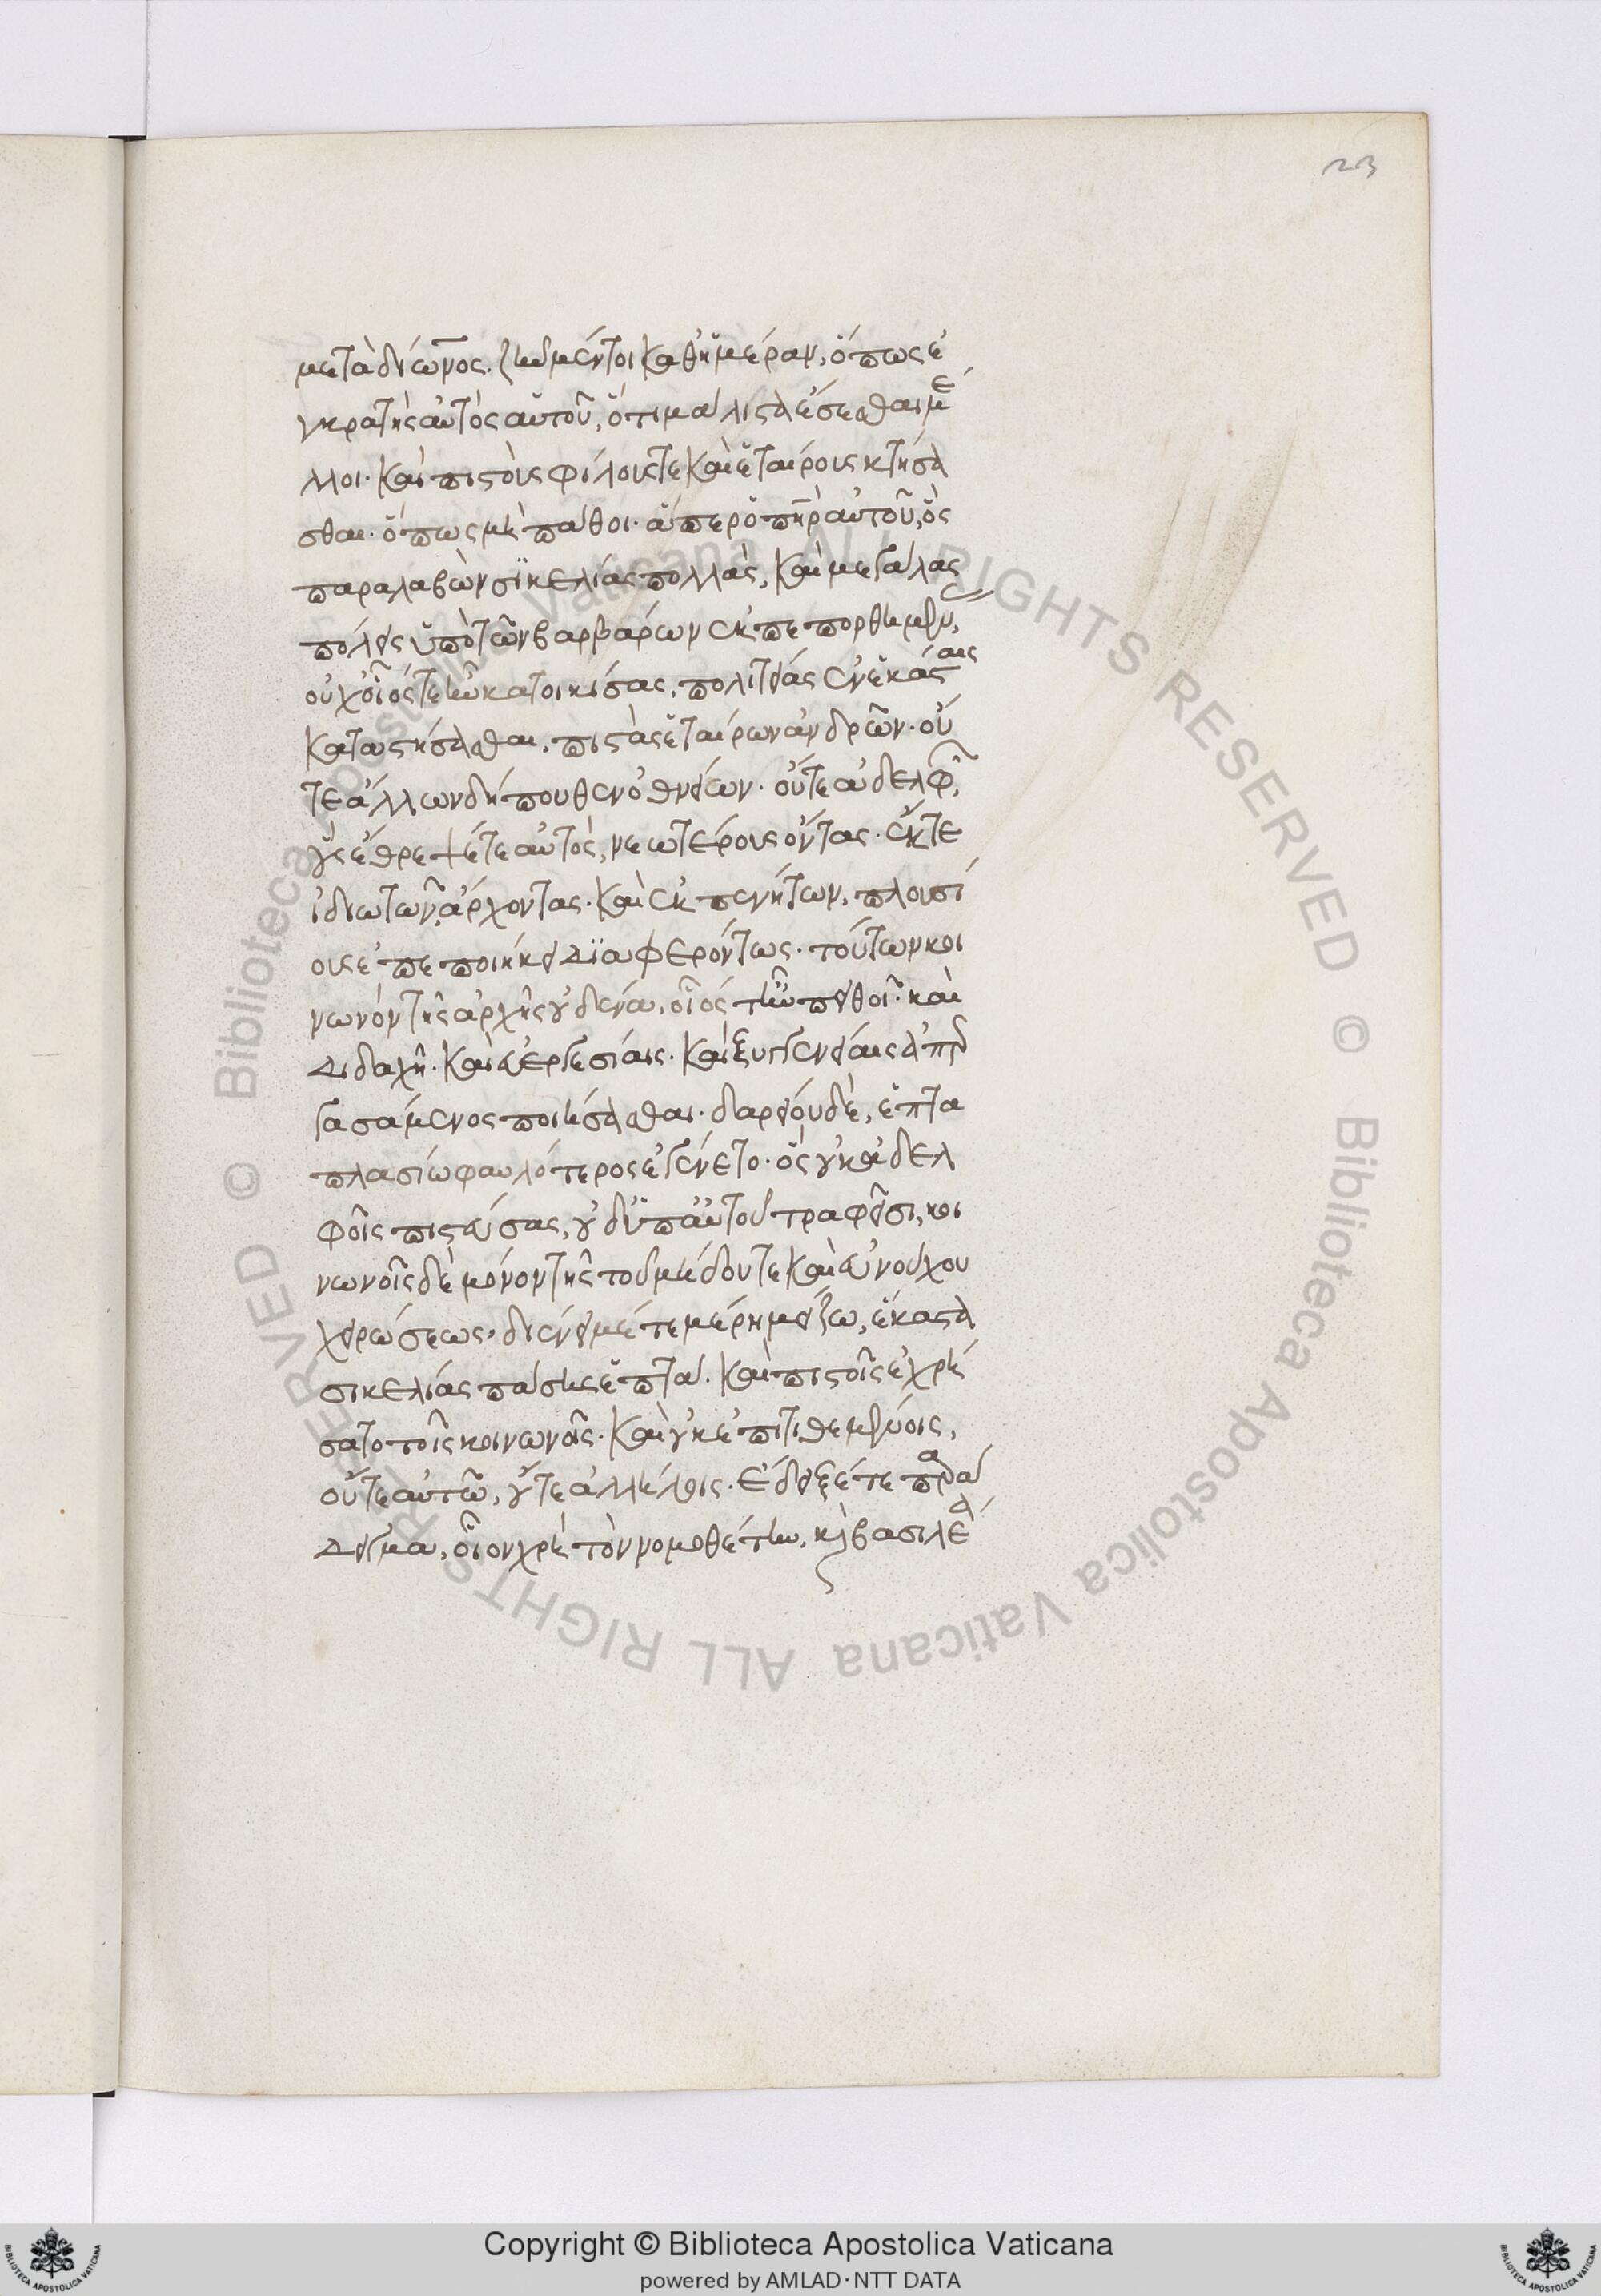 23
μετὰ δίωνος. ζῆν μέντοι καθημέραν, ὅπως ἐ
γκρατὴς αὐτὸς αὑτοῦ, ὅτι μάλιστα ἔσεσθαι μέ
λλοι. καὶ πιστοὺς φίλους τε καὶ ἑταίρους κτήσα
σθαι. ὅπως μὴ πάθοι. ἅπερ ὁ πὴρ αὐτοῦ, ὃς
παραλαβὼν σϊκελίας πολλὰς, καὶ μεγάλας
πόλεις ὑπὸ τῶν βαρβάρων ἐκπεπορθημέν,
οὐχ οἷός τε ἦν κατοικίσας, πολιτείας ἐν ἑκάσταις
καταστήσασθαι, πιστὰς ἑταίρων ἀνδρῶν. οὔ
τε ἄλλων δήποθεν ὀθνείων. οὔτε ἀδελφῶν,
οὓς ἔθρεψέ τε αὐτὸς, νεωτέρους ὄντας. ἔκ τε
ἰδιωτῶν, ἄρχοντας. καὶ ἐκ πενήτων, πλουσί
ους ἐπεποιήκει δϊαφερόντως. τούτων κοι
νωνὸν τῆς ἀρχῆς οὐδένα, οἷός τ' ἦν πειθοῖ. καὶ
διδαχῆ. καὶ εὐεργεσίαις. καὶ ξυγγενείαις ἀπερ
γασάμενος ποιήσασθαι. δαρείου δὲ, ἑπτα
πλασίω φαυλότερος ἐγένετο. ὃς οὐκ ἀδελ
φοῖς πιστεύσας, οὐδ' ὑπ' αὐτοῦ τραφεῖσι, κοι
νωνοῖς δὲ μόνον τῆς τοῦ μήδου τε καὶ εὐνούχου
χειρώσεως, διένειμέ τε μέρη μείζω, ἕκαστα
σικελίας πάσης ἑπτά. καὶ πιστοῖς ἐχρή
σατο τοῖς κοινωνοῖς. καὶ οὐκ ἐπιτιθεμένοις,
οὔτε αὐτῶ, οὔτε ἀλλήλοις. ἔδειξέ τε παρά
δειγμα, οἷον χρὴ τὸν νομοθέτην, καὶ βασιλέα
Copyright © Biblioteca Apostolica Vaticana
powered by AMLAD·NTT DATA